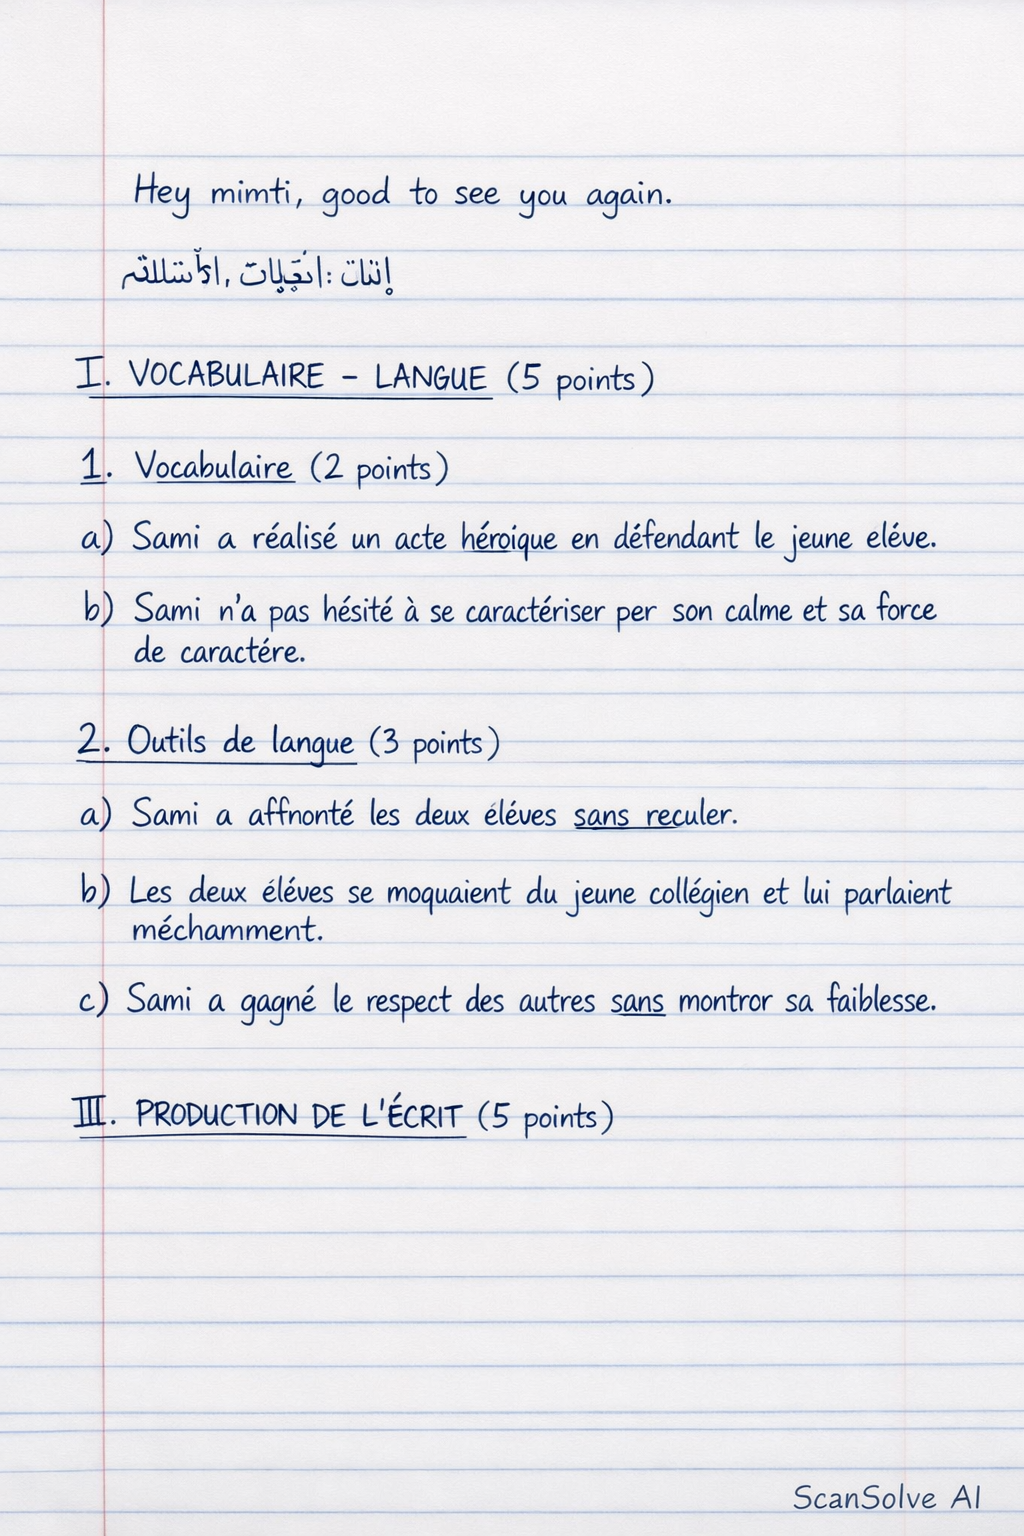 Hey mimti, good to see you again.
I. VOCABULAIRE – LANGUE (5 points)
1. Vocabulaire (2 points)
a) Sami a réalisé un acte héroique en défendant le jeune eléve.
b) Sami n'a pas hésité à se caractériser per son calme et sa force
de caractére.
2. Outils de langue (3 points)
a) Sami a affnonté les deux éléves sans reculer.
b) Les deux éléves se moquaient du jeune collégien et lui parlaient
méchamment.
c) Sami a gagné le respect des autres sans montror sa faiblesse.
III. PRODUCTION DE L'ÉCRIT (5 points)
ScanSolve AI